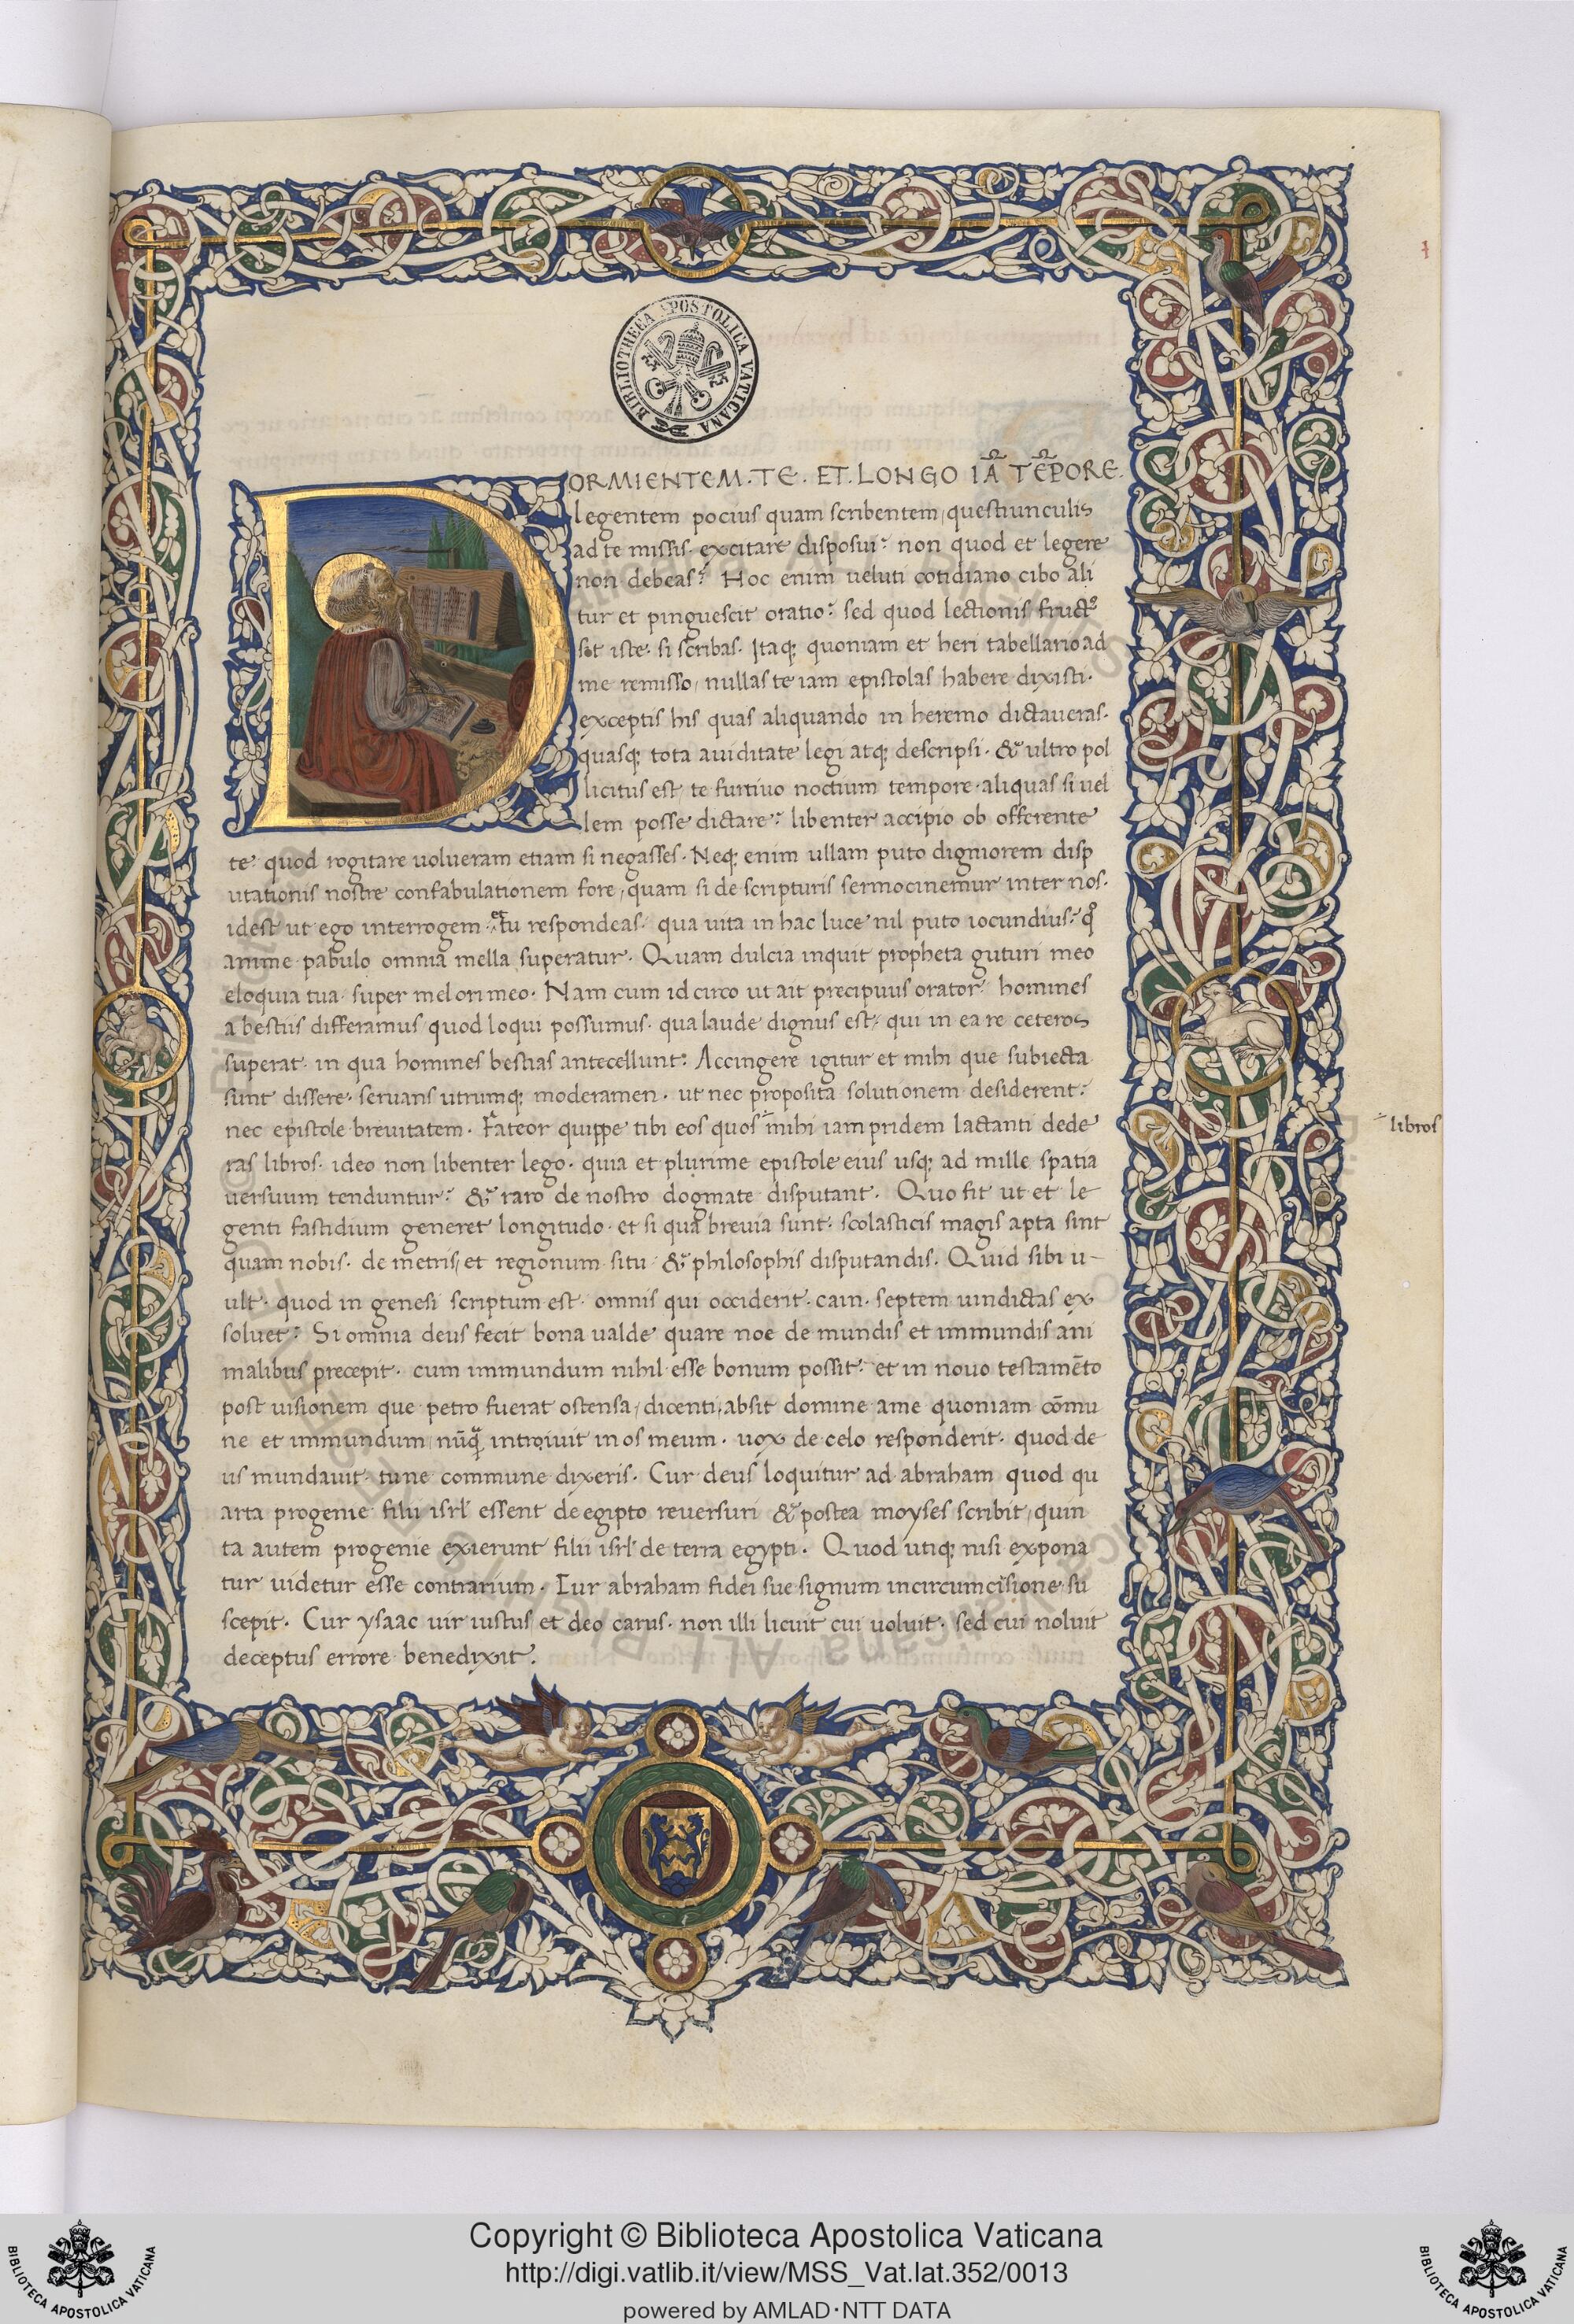 1
BIBLIOTHECA APOSTOLICA VATICANA
DORMIENTEM. TE. ET. LONGO IĀ TĒPORE.
legentem pocius quam scribentem, questiunculis
ad te missis. excitare disposui: non quod et legere
non debeas: Hoc enim ueluti cotidiano cibo ali
tur et pinguescit oratio: sed quod lectionis fructꝰ
sit iste. si scribas. Itaqꝫ quoniam et heri tabellario ad
me remisso, nullas te iam epistolas habere dixisti.
exceptis his quas aliquando in heremo dictaueras.
quasqꝫ tota auiditate legi atqꝫ descripsi. & ultro pol
licitus est, te furtiuo noctium tempore. aliquas si uel
lem posse dictare: libenter accipio ob offerente
te. quod rogitare uolueram etiam si negasses. Neqꝫ enim ullam puto digniorem disp
utationis nostre confabulationem fore, quam si de scripturis sermocinemur inter nos.
idest ut ego interrogem. et tu respondeas. qua uita in hac luce nil puto iocundius: qͦ
anime pabulo omnia mella superatur. Quam dulcia inquit propheta guturi meo
eloquia tua. super mel ori meo. Nam cum id circo ut ait precipuus orator: homines
a bestiis differamus quod loqui possumus. qua laude dignus est, qui in ea re ceteros
superat. in qua homines bestias antecellunt: Accingere igitur et mihi que subiecta
sunt dissere. seruans utrumqꝫ moderamen. ut nec proposita solutionem desiderent:
nec epistole breuitatem. Fateor quippe tibi eos quos mihi iam pridem lactanti dede
ras libros. ideo non libenter lego. quia et plurime epistole eius usqꝫ ad mille spatia
uersuum tenduntur: & raro de nostro dogmate disputant. Quo fit ut et le
genti fastidium generet longitudo. et si qua breuia sunt. scolasticis magis apta sint
quam nobis. de metris, et regionum situ & philosophis disputandis. Quid sibi u-
ult. quod in genesi scriptum est. omnis qui occiderit. cain. septem uindictas ex
soluet: Si omnia deus fecit bona ualde quare noe de mundis et immundis ani
malibus precepit. cum immundum nihil esse bonum possit: et in nouo testamēto
post uisionem que petro fuerat ostensa, dicenti, absit domine a me quoniam cōmu
ne et immundum nūqꝫ introiuit in os meum. uox de celo responderit. quod de
us mundauit. tu ne commune dixeris. Cur deus loquitur ad abraham quod qu
arta progenie filii isrl essent de egipto reuersuri & postea moyses scribit, quin
ta autem progenie exierunt filii isrl de terra egypti. Quod utiqꝫ nisi expona
tur uidetur esse contrarium. Cur abraham fidei sue signum in circumcisione su
scepit. Cur ysaac uir iustus et deo carus. non illi licuit cui uoluit. sed cui noluit
deceptus errore benedixit.
libros
Copyright © Biblioteca Apostolica Vaticana
http://digi.vatlib.it/view/MSS_Vat.lat.352/0013
powered by AMLAD·NTT DATA
BIBLIOTECA APOSTOLICA VATICANA
BIBLIOTECA APOSTOLICA VATICANA